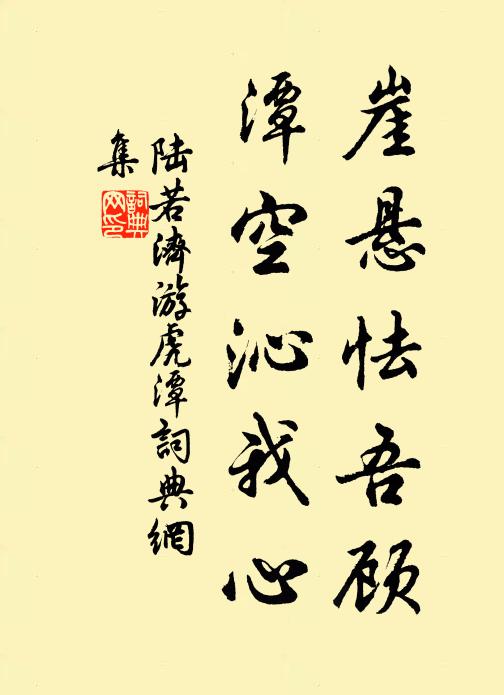 崖悬怯吾顾
潭空沁我心
陆若济游虎潭詞典網
集
詞典
网印